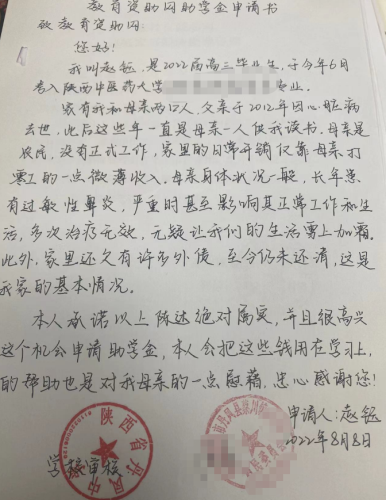 教育资助网助学金申请书
致教育资助网:
您好!
我叫赵钰,是2022届高三毕业生,于今年6月
考入陕西中医药大学 专业。
家有我和母亲两口人,父亲于2012年因心脏病
去世,此后这些年一直是母亲一人供我读书。母亲是
农民,没有正式工作,家里的日常开销仅靠母亲打
零工的一点微薄收入。母亲身体状况一般,长年患
有过敏性鼻炎,严重时甚至影响其正常工作和生
活,多次治疗无效,无疑让我们的生活雪上加霜。
此外,家里还欠有许多外债,至今仍未还清,这是
我家的基本情况。
本人承诺以上陈述绝对属实,并且很高兴
这个机会申请助学金,本人会把这些钱用在学习上,
的帮助也是对我母亲的一点慰藉。忠心感谢您!
申请人:赵钰
2022年8月8日
学校审核
陕西省丹凤